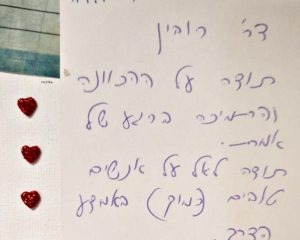 דר' רובין
תודה על ההכוונה
והתמיכה ברגע של
אמת.
תודה לאל על אנשים
טובים (כמוך) באמצע
הדרך.